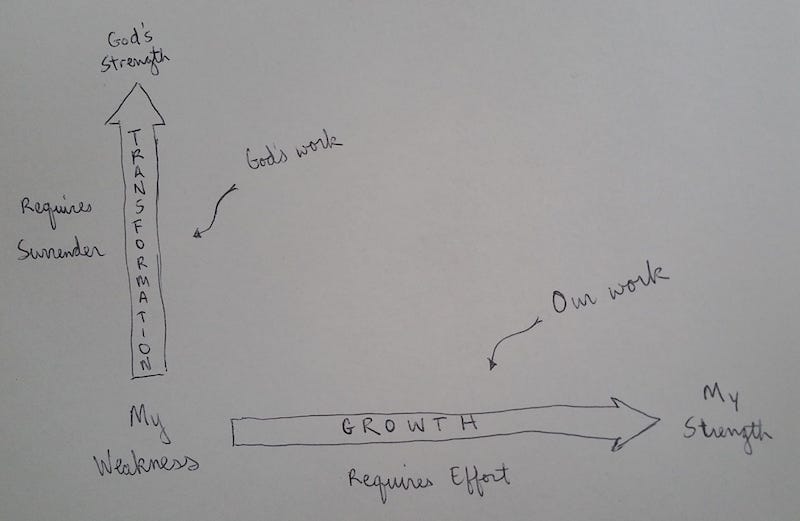 God's
Strength
TRANSFORMATION
God's work
Requires
Surrender
Our work
My
Weakness
GROWTH
My
Strength
Requires Effort